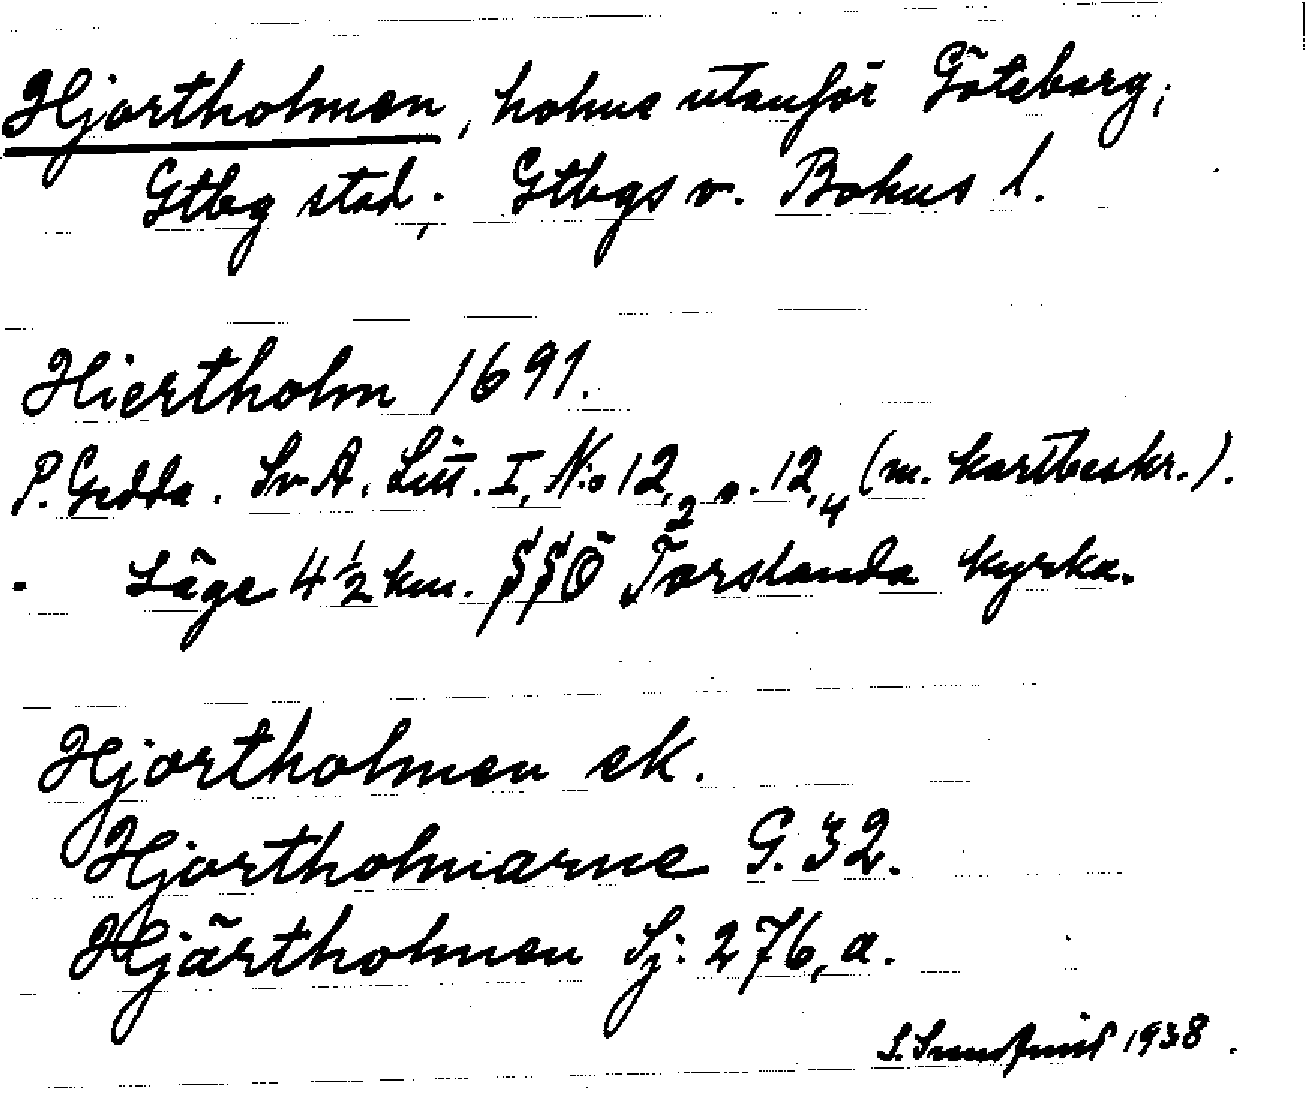 Hjortholmen, holme utanför Göteborg;
Gtbg stad; Gtbgs o. Bohus l.
Hiertholm 1691.
P. Gedda. Sv. A. Litt. I, No 12,2 o. 12,4 (m. kartbeskr.).
- Läge 4 1/2 km. SSÖ Torslanda kyrka.
Hjortholmen ek.
Hjortholmarne G. 32.
Hjärtholmen Sj: 276, a.
1938.